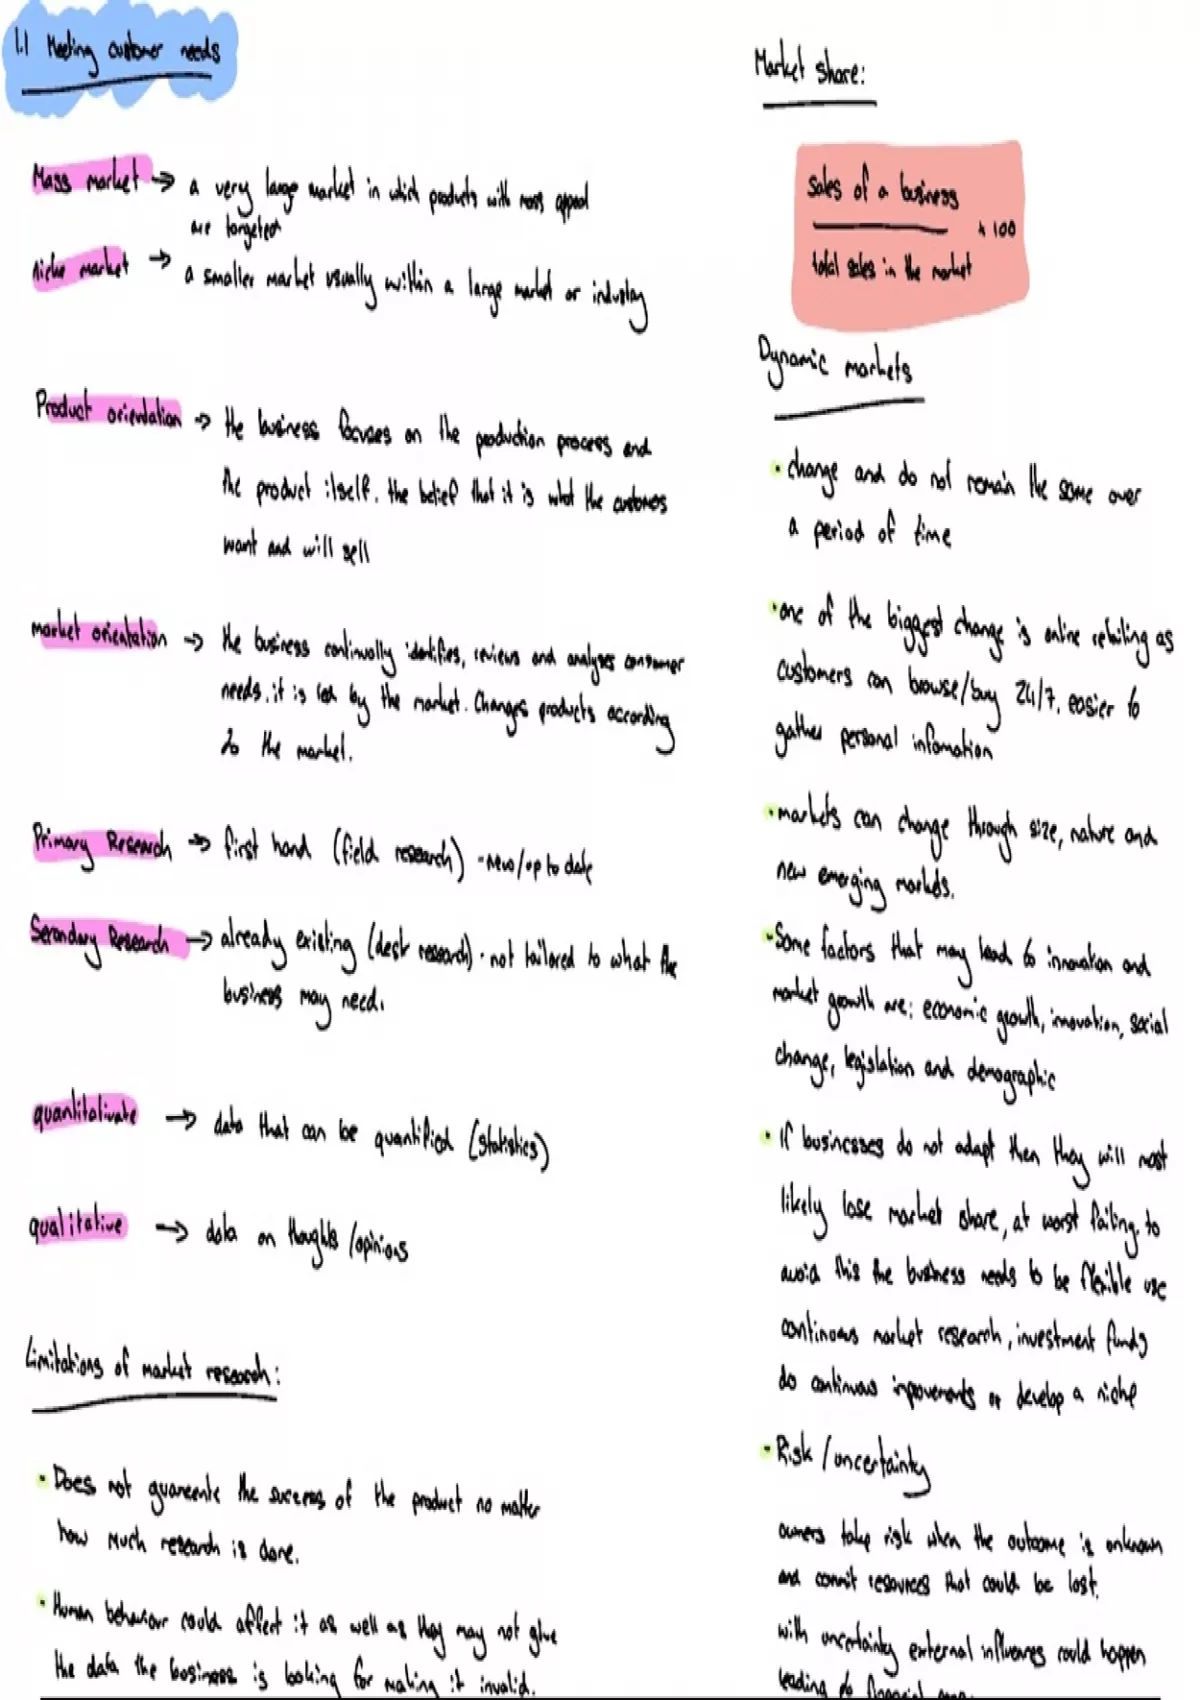 1.1 Meeting customer needs
Mass market → a very large market in which products with mass appeal
are targeted
niche market → a smaller market usually within a large market or industry
Product orientation → the business focuses on the production process and
the product itself. the belief that it is what the customers
want and will sell
market orientation → the business continually identifies, reviews and analyses consumer
needs. it is led by the market. Changes products according
to the market.
Primary Research → first hand (field research) - new/up to date
Secondary Research → already existing (desk research) - not tailored to what the
business may need.
quantitativate → data that can be quantified (statistics)
qualitative → data on thoughts/opinions
Limitations of market research:
• Does not guarentee the success of the product no matter
how much research is done.
• Human behaviour could affect it as well as they may not give
the data the business is looking for making it invalid.
Market share:
sales of a business
x 100
total sales in the market
Dynamic markets
• change and do not remain the same over
a period of time
• one of the biggest change is online retailing as
customers can browse/buy 24/7. easier to
gather personal infomation
• markets can change through size, nature and
new emerging markets.
• Some factors that may lead to innovation and
market growth are: economic growth, innovation, social
change, legislation and demographic
• If businesses do not adapt then they will most
likely lose market share, at worst failing. to
avoid this the business needs to be flexible use
continous market research, investment funds
do continous inpovements or develop a niche
• Risk / uncertainty
owners take risk when the outcome is unknown
and commit resources that could be lost.
with uncertainty external influences could happen
leading to financial